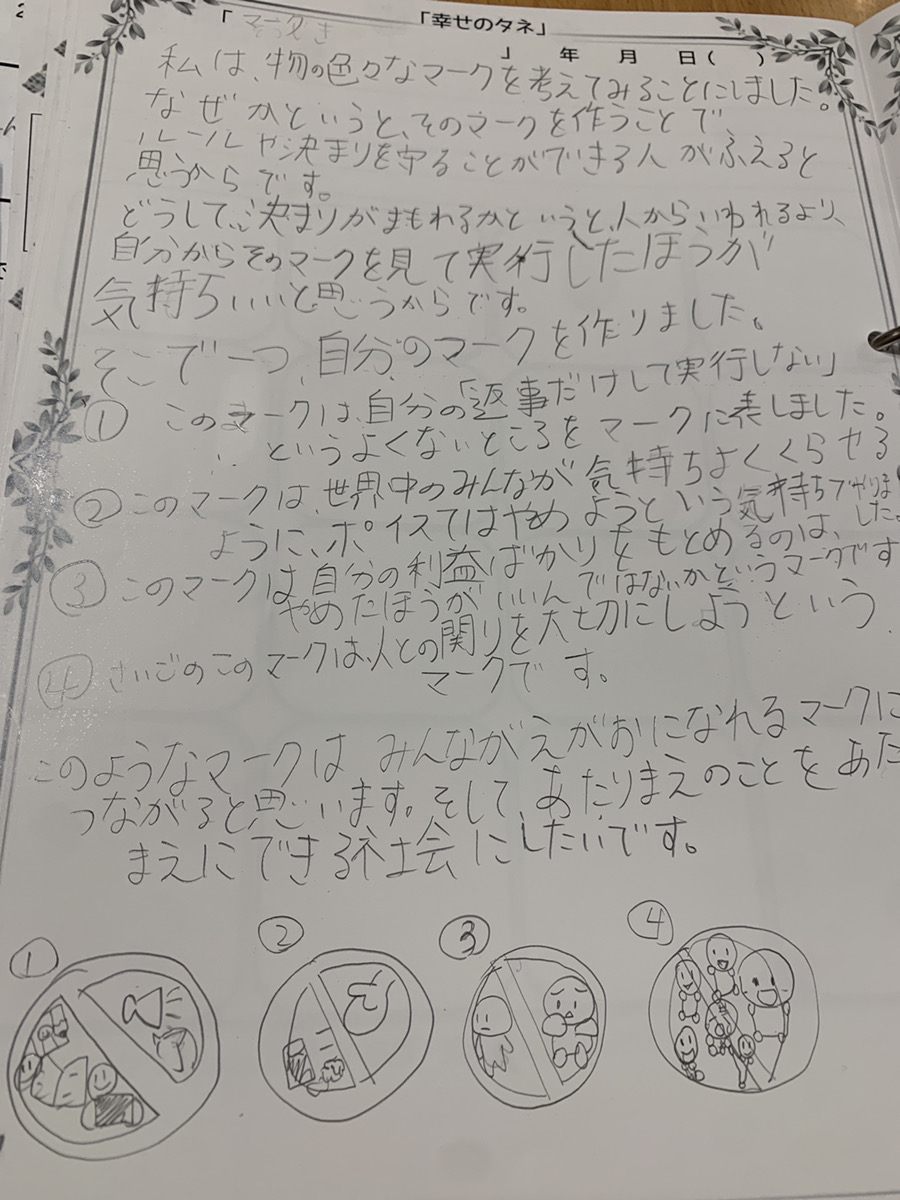 「幸せのタネ」
「マーク
」 年 月 日( )
私は、物の色々なマークを考えてみることにしました。
なぜかというと、そのマークを作うことで、
ルールや決まりを守ることができる人がふえると
思うからです。
どうして、決まりがまもれるかというと、人からいわれるより、
自分からそのマークを見て実行したほうが
気持ちいいと思うからです。
そこで一つ、自分のマークを作りました。
① このマークは、自分の「返事だけして実行しない」
というよくないところをマークに表しました。
② このマークは、世界中のみんなが気持ちよくくらせる
ように、ポイすてはやめようという気持ちでやりました。
③ このマークは、自分の利益ばかりをもとめるのは、
やめたほうがいいんではないかというマークです
④ さいごのこのマークは、人との関りを大切にしようという
マークです。
このようなマークはみんながえがおになれるマークに
つながると思います。そして、あたりまえのことをあた
まえにできる社会にしたいです。
① ② ③ ④